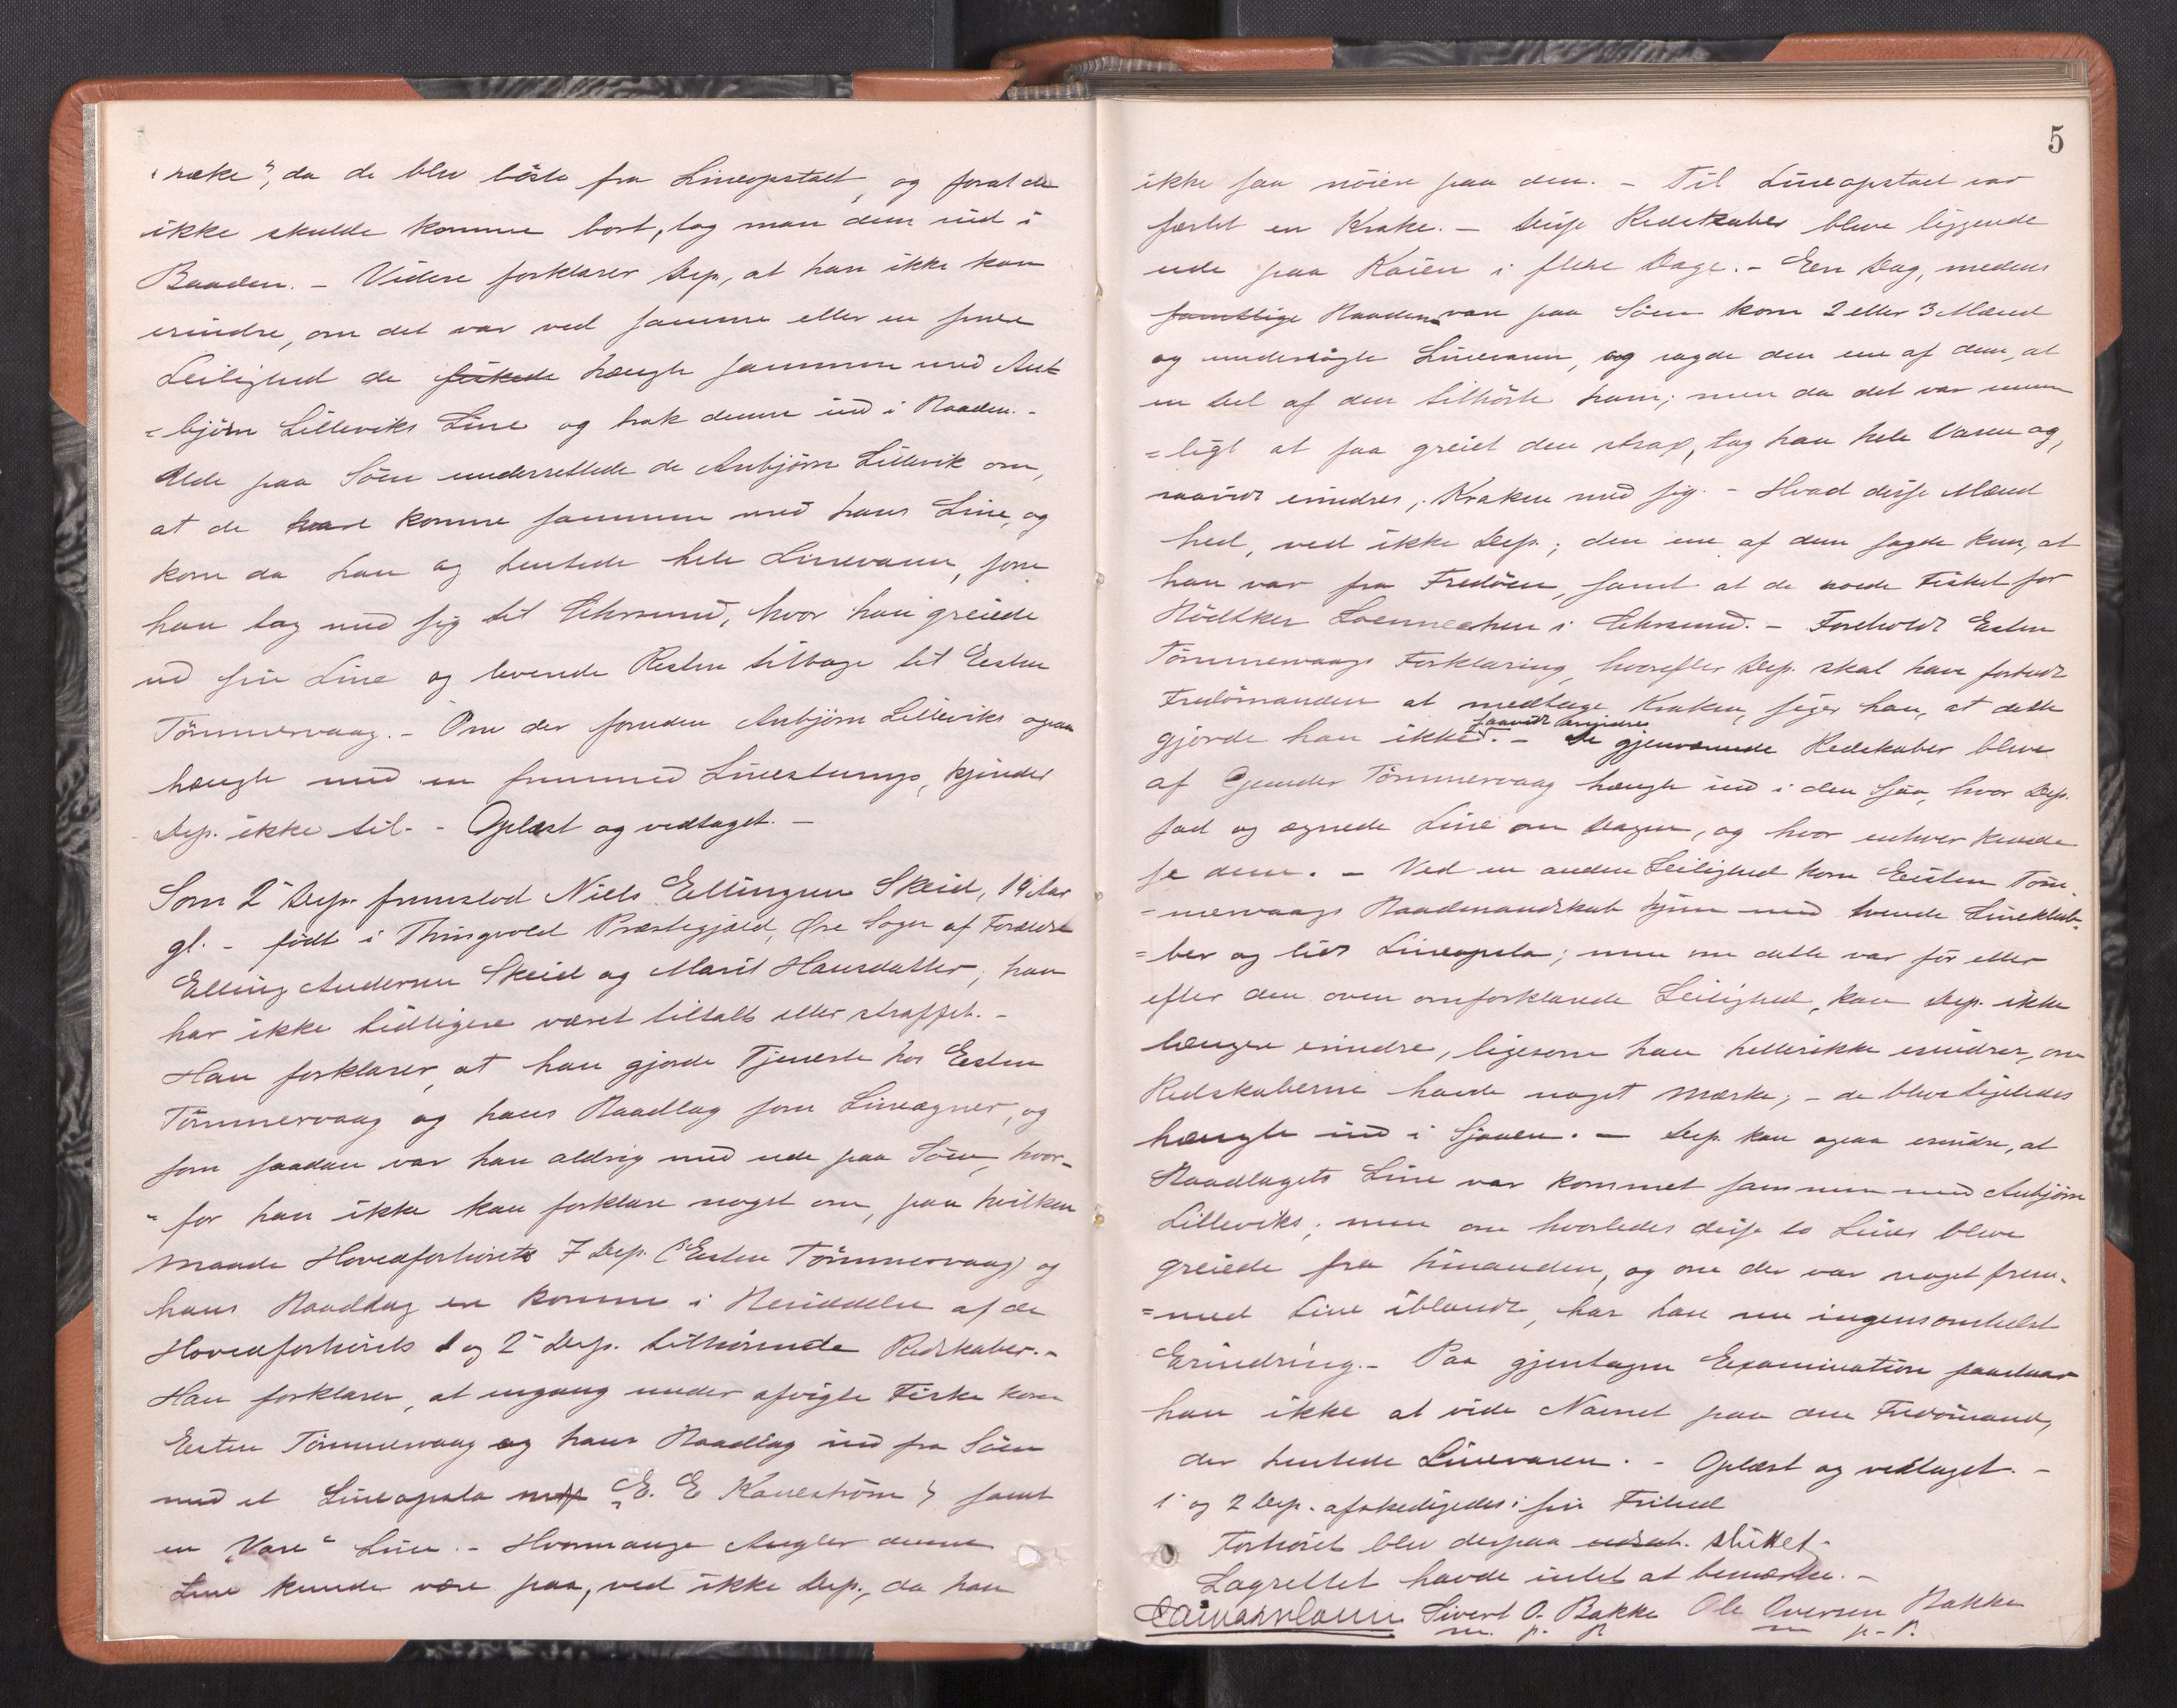 ræke", da de blev löste fra Lineopstaet, og forat de
ikke skulde komme bort, tog man dem ind i
Baaden. – Videre forklarer Dep, at han ikke kan
erindre, om det var ved samme eller en senere
Leilighed de fiskede hængte sammen med An-
=björn Lilleviks Line og trak denne ind i Baaden. –
Ude paa Söen underrettede de Anbjörn Lillevik om,
at de vare komne sammen med hans Line, og
kom da han og hentede hele Linevasen, som
han tog med sig til Chrsund, hvor han greiede
ud sin Line og leverede Resten tilbage til Eesten
Tömmervaag. – Om der foruden Anbjörn Lilleviks ogsaa
hængte med en fremmed Linestump, kjender
Dep. ikke til. – Oplæst og vedtaget. –
Som 2 Dep. fremstod Niels Ellingsen Skeid, 19 Aar
gl. – födt i Thingvold Præstegjæld, Öre Sogn af Forældre
Elling Andersen Skeid og Marit Hansdatter; han
har ikke tidligere været tiltalt eller straffet. –
Han forklarer, at han gjorde Tjeneste hos Eesten
Tömmervaag og hans Baadlag som Lineegner, og
som saadan var han aldrig med ude paa Söen, hvor-
=for han ikke kan forklare noget om, paa hvilken
Maade Hovedforhörets 7 Dep. (Eesten Tömmervaag) og
hans Baadlag er komne i Besiddelse af de
Hovedforhörets 1 og 2 Dep. tilhörende Redskaber. –
Han forklarer, at engang under afvigte Fiske kom
Eesten Tömmervaag og hans Baadlag ind fra Söen
med et Lineopsta "E. E Kaneström" samt
en "Vase" Line. – Hvormange Angler denne
Line kunde være paa, ved ikke Dep., da han
5
ikke saa nöiere paa den. – Til Lineopstaet var
fæstet en Krake. – Disse Redskaber bleve liggende
ude paa Kaien i flere Dage. – Een Dag, medens
samtlige Baaden vare paa Söen kom 2 eller 3 Mænd
og undersögte Linevasen, og sagde den ene af dem, at
en Del af den tilhörte ham; men da det var umu-
=ligt at faa greiet den strax, tog han hele Vasen og,
saavidt erindres, Kraken med sig. – Hvad disse Mænd
hed, ved ikke Dep.; den ene af dem sagde kun, at
han var fra Fredöen, samt at de roede Fisket for
Bödtker i Chrsund. – Foreholdt Eesten
Tömmervaags Forklaring, hvorefter Dep. skal have forbudt
Fredömanden at medtage Kraken, siger han, at dette
gjorde han ikke saavidt erindres. – De gjenværende Redskaber bleve
af Gjender Tömmervaag hængte ind i den Sjaa, hvor Dep.
sad og egnede Line om Dagen, og hvor enhver kunde
se dem. – Ved en anden Leilighed kom Eesten Töm-
=mervaags Baadmandskab hjem med tvende Lineklub-
=ber og lidt Lineopsta; men om dette var för eller
efter den oven omforklarede Leilighed, kan Dep. ikke
længere erindre, ligesom han hellerikke erindrer, om
Redskaberne havde noget Mærke; – de bleve ligeledes
hængte ind i Sjaaen. – Dep. kan ogsaa erindre, at
Baadlagets Line var kommet sammen med Anbjörn
Lilleviks; men om hvorledes disse to Liner bleve
greiede fra hinanden, og om der var noget frem-
=med Line iblandt, har han nu ingensomhelst
Erindring. – Paa gjentagen Examination paastaar
han ikke at vide Navnet paa den Fredömand,
der hentede Linevasen. – Oplæst og vedtaget. –
1 og 2 Dep. afskedigedes i sin Frihed
Forhöret blev derpaa udsat. sluttet. –
Lagrettet havde intet at bemærke. –
Sivert O. Bakke Ole Iversen Bakke
m. p. p. m p. P.